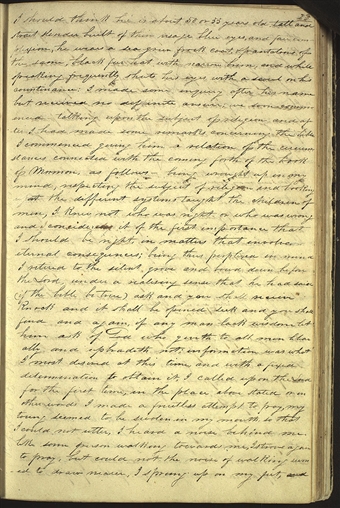 23
I should think he is about 50 or 55 years old tall and
strait slender built of thin visage blue eyes, and fair com
plexion, he wears a sea green frock coat, & pantaloons of
the same, black fur hat with narrow brim, and while
speaking frequently shuts his eyes with a scowl on his
countinance; I made some enquiry after his name
but received no definite answer; we soon
talking upon the subject of religion and af
ter I had made some remarks concerning the bible
I commenced giving him a relation of the circum
stances connected with the coming forth of the book
of Mormon, as follows— being wrought up in my
mind, respecting the subject of religion and looking
at the different systems taught the children of
men, I knew not who was right or who was wrong
and considered it of the first importance that
I should be right, in matters that involve
eternal consequences; being thus perplexed in mind
I retired to the silent grove and bowd down before
the Lord, under a realising sense that he had said
(if the bible be true) ask and you shall receive
knock and it shall be opened seek and you shall
find and again, if any man lack wisdom let
him ask of God who giveth to all men libar
ally and upbradeth not; information was what
I most desired at this time, and with a fixed
determination to obtain it, I called upon the Lord
for the first time, in the place above stated or in
other words I made a fruitless attempt to pray, my
toung seemed to be swolen in my mouth, so that
I could not utter, I heard a noise behind me
like some person walking towards me, I strove again
to pray, but could not, the noise of walking seem
ed to draw nearer, I sprung up on my feet, and